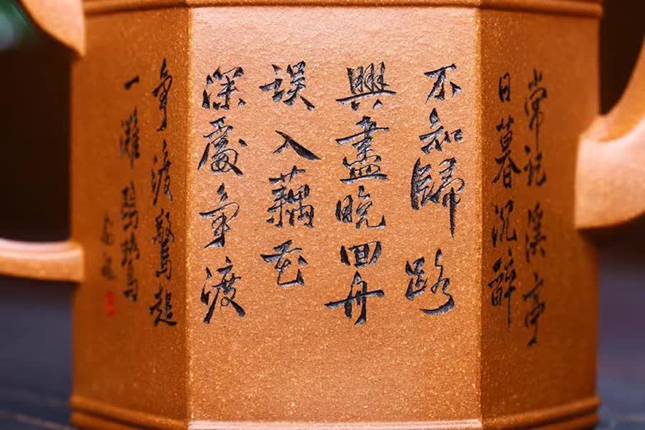 常记溪亭
日暮沉醉
不知歸路
興盡晚回舟
误入藕花
深處争渡
争渡驚起
一灘鷗鷺